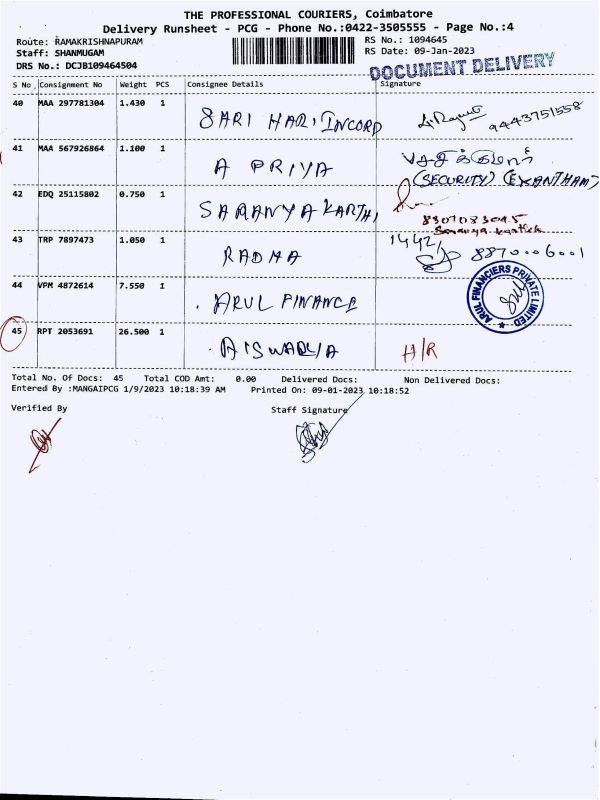 THE PROFESSIONAL COURIERS, Coimbatore
Delivery Runsheet - PCG - Phone No.:0422-3505555 - Page No.:4
Route: RAMAKRISHNAPURAM
RS No.: 1094645
Staff: SHANMUGAM
RS Date: 09-Jan-2023
DRS No.: DCJB109464504
DOCUMENT DELIVERY
S No Consignment No Weight PCS Consignee Details Signature
40 MAA 297781304 1.430 1 SARI HARI INCORP 9443751558
41 MAA 567926864 1.100 1 A PRIYA
(SECURITY)
42 EDQ 25115802 0.750 1 SARANYA KARTHI
43 TRP 7897473 1.050 1 RADHA 1442 8870006001
44 VPM 4872614 7.550 1 ARUL FINANCE ARUL FINANCIERS PRIVATE LIMITED
45 RPT 2053691 26.500 1 AISWARYA H/R
Total No. Of Docs: 45 Total COD Amt: 0.00 Delivered Docs: Non Delivered Docs:
Entered By :MANGAIPCG 1/9/2023 10:18:39 AM Printed On: 09-01-2023 10:18:52
Verified By Staff Signature